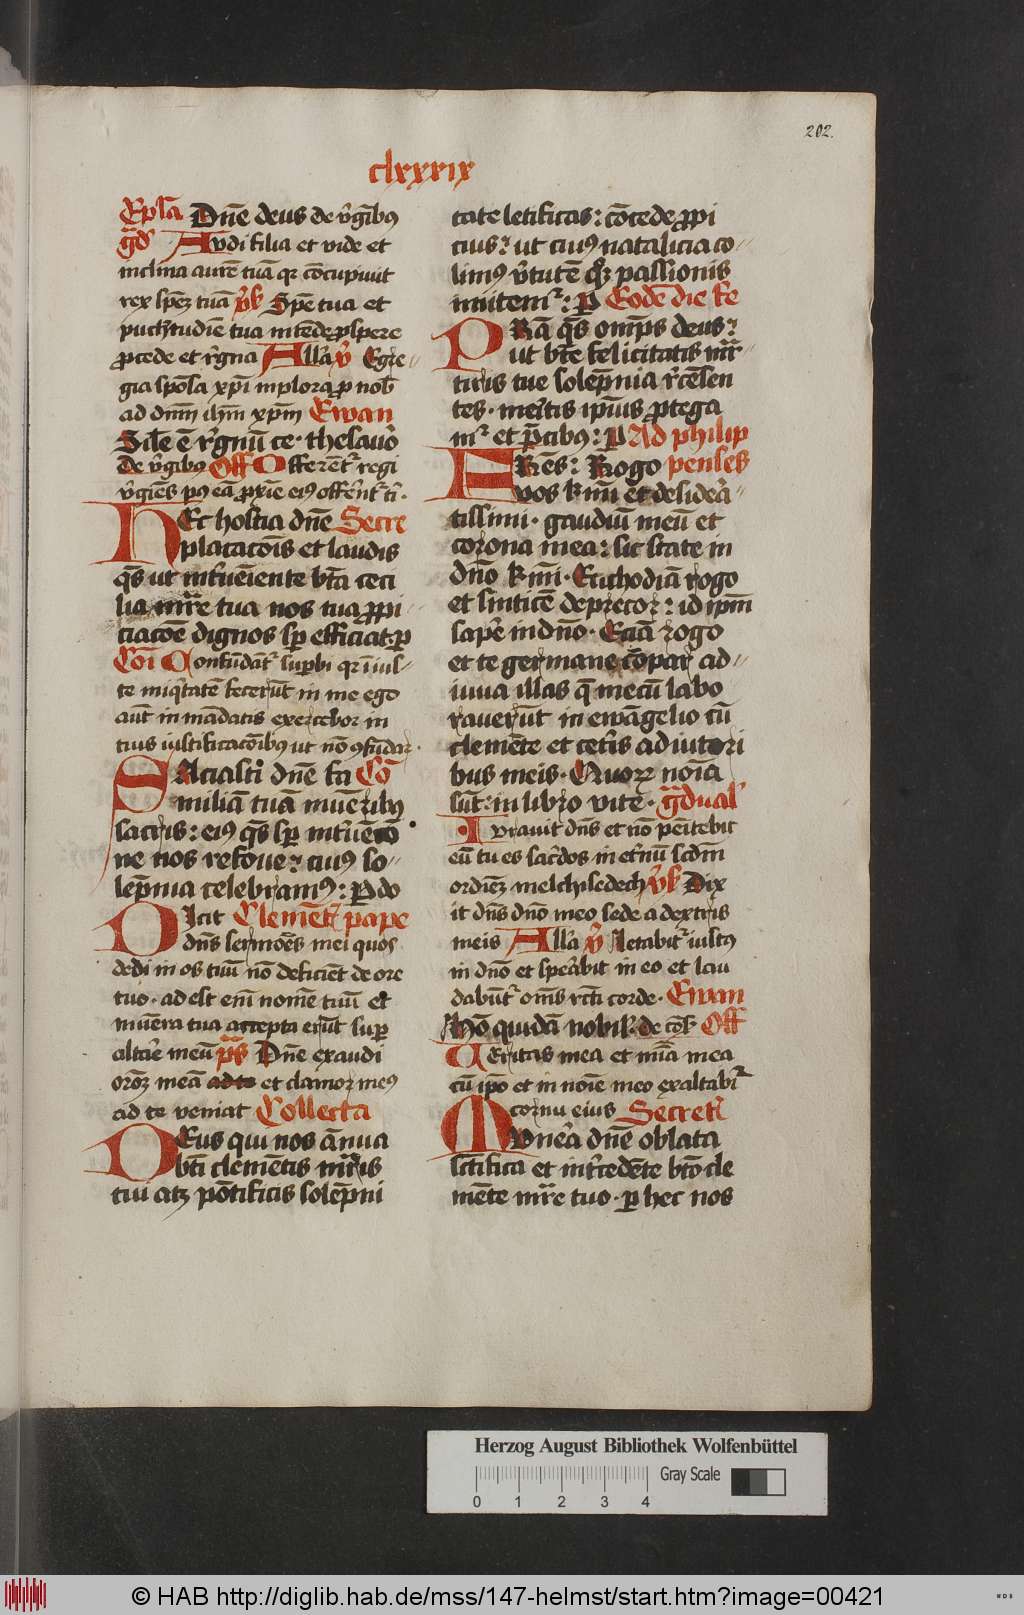 202.
clxxxix
Epl̄a Dn̄e deus de v̓gībus
Gd̄ Audi filia et vide et
inclina aurē tuā qr cōcupiuit
rex spēz tuā v̓k Spē tua et
pulchtudīe tua intēde ꝓspere
ꝓcede et r̓gna All'a v̓ Egre-
gia spōsa xp̄i inplora ꝓ nob̄
ad dnm̄ ihm̄ xp̄m Ewan
Sile ē r̓gnū ce · thesauro
de v̓gībus Off Offerēt᷑ regi
v̓gīes pꝰ eā ꝓxīe eiꝰ offerūt᷑ t̄ ·
Hec hostia dn̄e Secre
placacōis et laudis
qs̄ ut int̓ueīente bt̄a ceci
lia mr̄e tua nos tua ꝓpi
ciacōe dignos sp̄ efficiat ꝑ
Cōi Confūdāt᷑ supbi qr iīus-
te iniq̓tatē fecerūt in me ego
aūt in mādatis exercebor in
tuis iustificacōibꝰ ut nō ꝯfūdar ·
Saciasti dn̄e fa Cō
miliā tuā munēribꝰ
sacris : eiꝰ qs̄ sp̄ int̓uēcō
ne nos refoue : cuiꝰ so-
lēpnia celebramꝰ : P do
Dicit Clemēt᷑ pāpe
dn̄s sermōēs mei quos
dedi in os tuū nō deficiēt de ore
tuo · adest eni nomē tuū et
munēra tua accepta erūt sup
altare meū ps̄ Dn̄e exaudi
orōz meā ad te et clamor meꝰ
ad te veniat Collecta
Deus qui nos annua
bt̄i clemētis mr̄is
tui atz pōtificis solēpni
tate letificas : cōcede ꝓpi
cius : ut cuiꝰ natalicia co-
limꝰ v̓tutē qz passionis
imitem᷑ : P Eodē die fe
Pra qs̄ omps̄ deus :
ut bt̄e felicitatis mr̄-
tiris tue solēpnia r̓cēsen
tes · meritis ipīus ꝓtega
m᷑ et p̄cibus : P Ad philip
Fres : Rogo penses
vos kmī et desidera-
tissimi · gaudiū meū et
corona mea : sic state in
dn̄o kmī · Euchodiā rogo
et sinticē deprecor : id ipm̄
sapē in dn̄o · Eciā rogo
et te germane cōpar ad-
iuua illas q̄ mecū labo
rauerūt in ewāgelio cū
clemēte et cet̓is adiutori
bus meis · Quorz nōīa
sūt : in libro vite · Gdual'
Iurauit dn̄s et nō penitebit
eū tu es sacerdos in et̓nū scdm̄
ordinēz melchisedech v̓k Dix
it dn̄s dn̄o meo sede a dextris
meis All'a v̓ Letabit᷑ iustꝰ
in dn̄o et sperabit in eo et lau
dabūt᷑ oms̄ rcti corde · Ewan
Hō quidā nobil' · de cōf · Off
Veritas mea et mīa mea
cū ipo et in noīe meo exaltabi᷑
cornu eius Secret᷑
Munera dn̄e oblata
sctīfica et int̓cedēte bt̄o cle
mēte mr̄e tuo · ꝑ hec nos
Herzog August Bibliothek Wolfenbüttel
Gray Scale
0 1 2 3 4
© HAB http://diglib.hab.de/mss/147-helmst/start.htm?image=00421